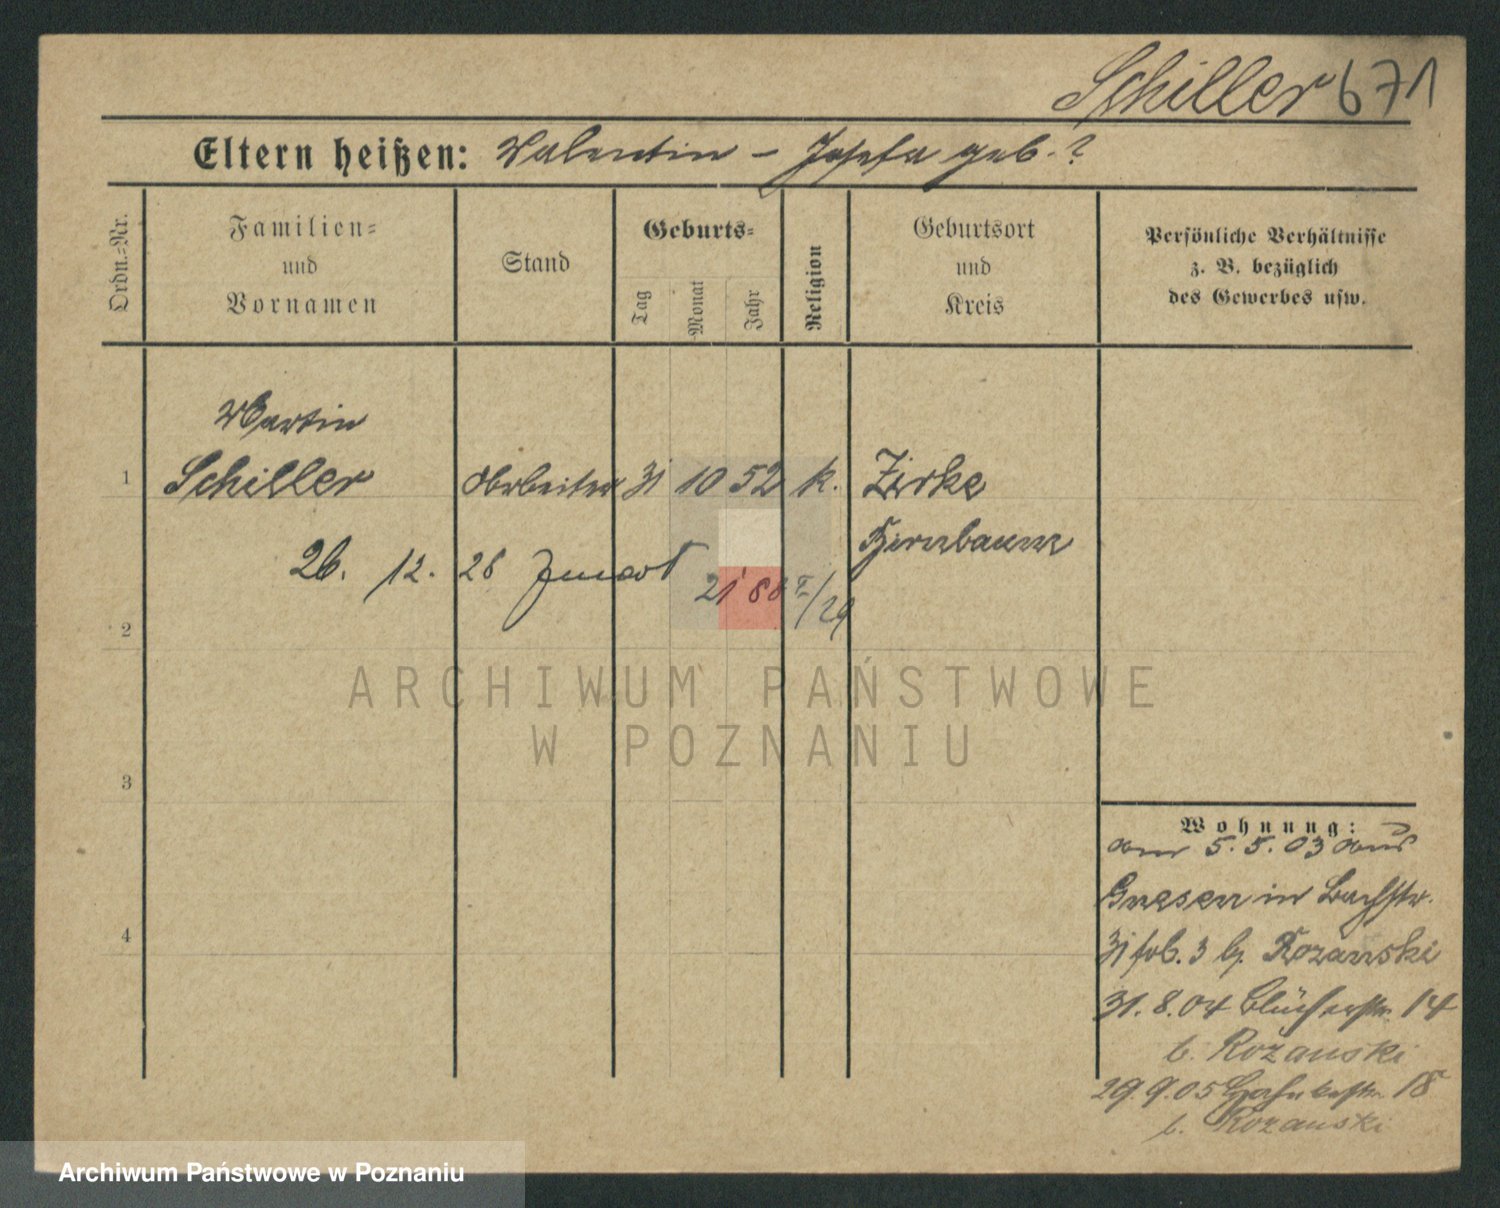 Schiller 671
Eltern heißen: Valentin – Josefa geb. ?
Ordn.=Nr.
Familien=
und
Vornamen
Stand
Geburts=
Tag
Monat
Jahr
Religion
Geburtsort
und
Kreis
Persönliche Verhältnisse
z. B. bezüglich
des Gewerbes usw.
Martin
1 Schiller Arbeiter 31 10 52 k. Zirke
Birnbaum
26. 12. 28 zmarł
21 88 /29
2
3
4
Wohnung:
am 5.5.03 aus
Gnesen in Bachstr.
31 3 b. Rozanski
31.8.04 Blücherstr. 14
b. Rożanski
29.9.05 18
b. Rozanski
ARCHIWUM PAŃSTWOWE
W POZNANIU
Archiwum Państwowe w Poznaniu